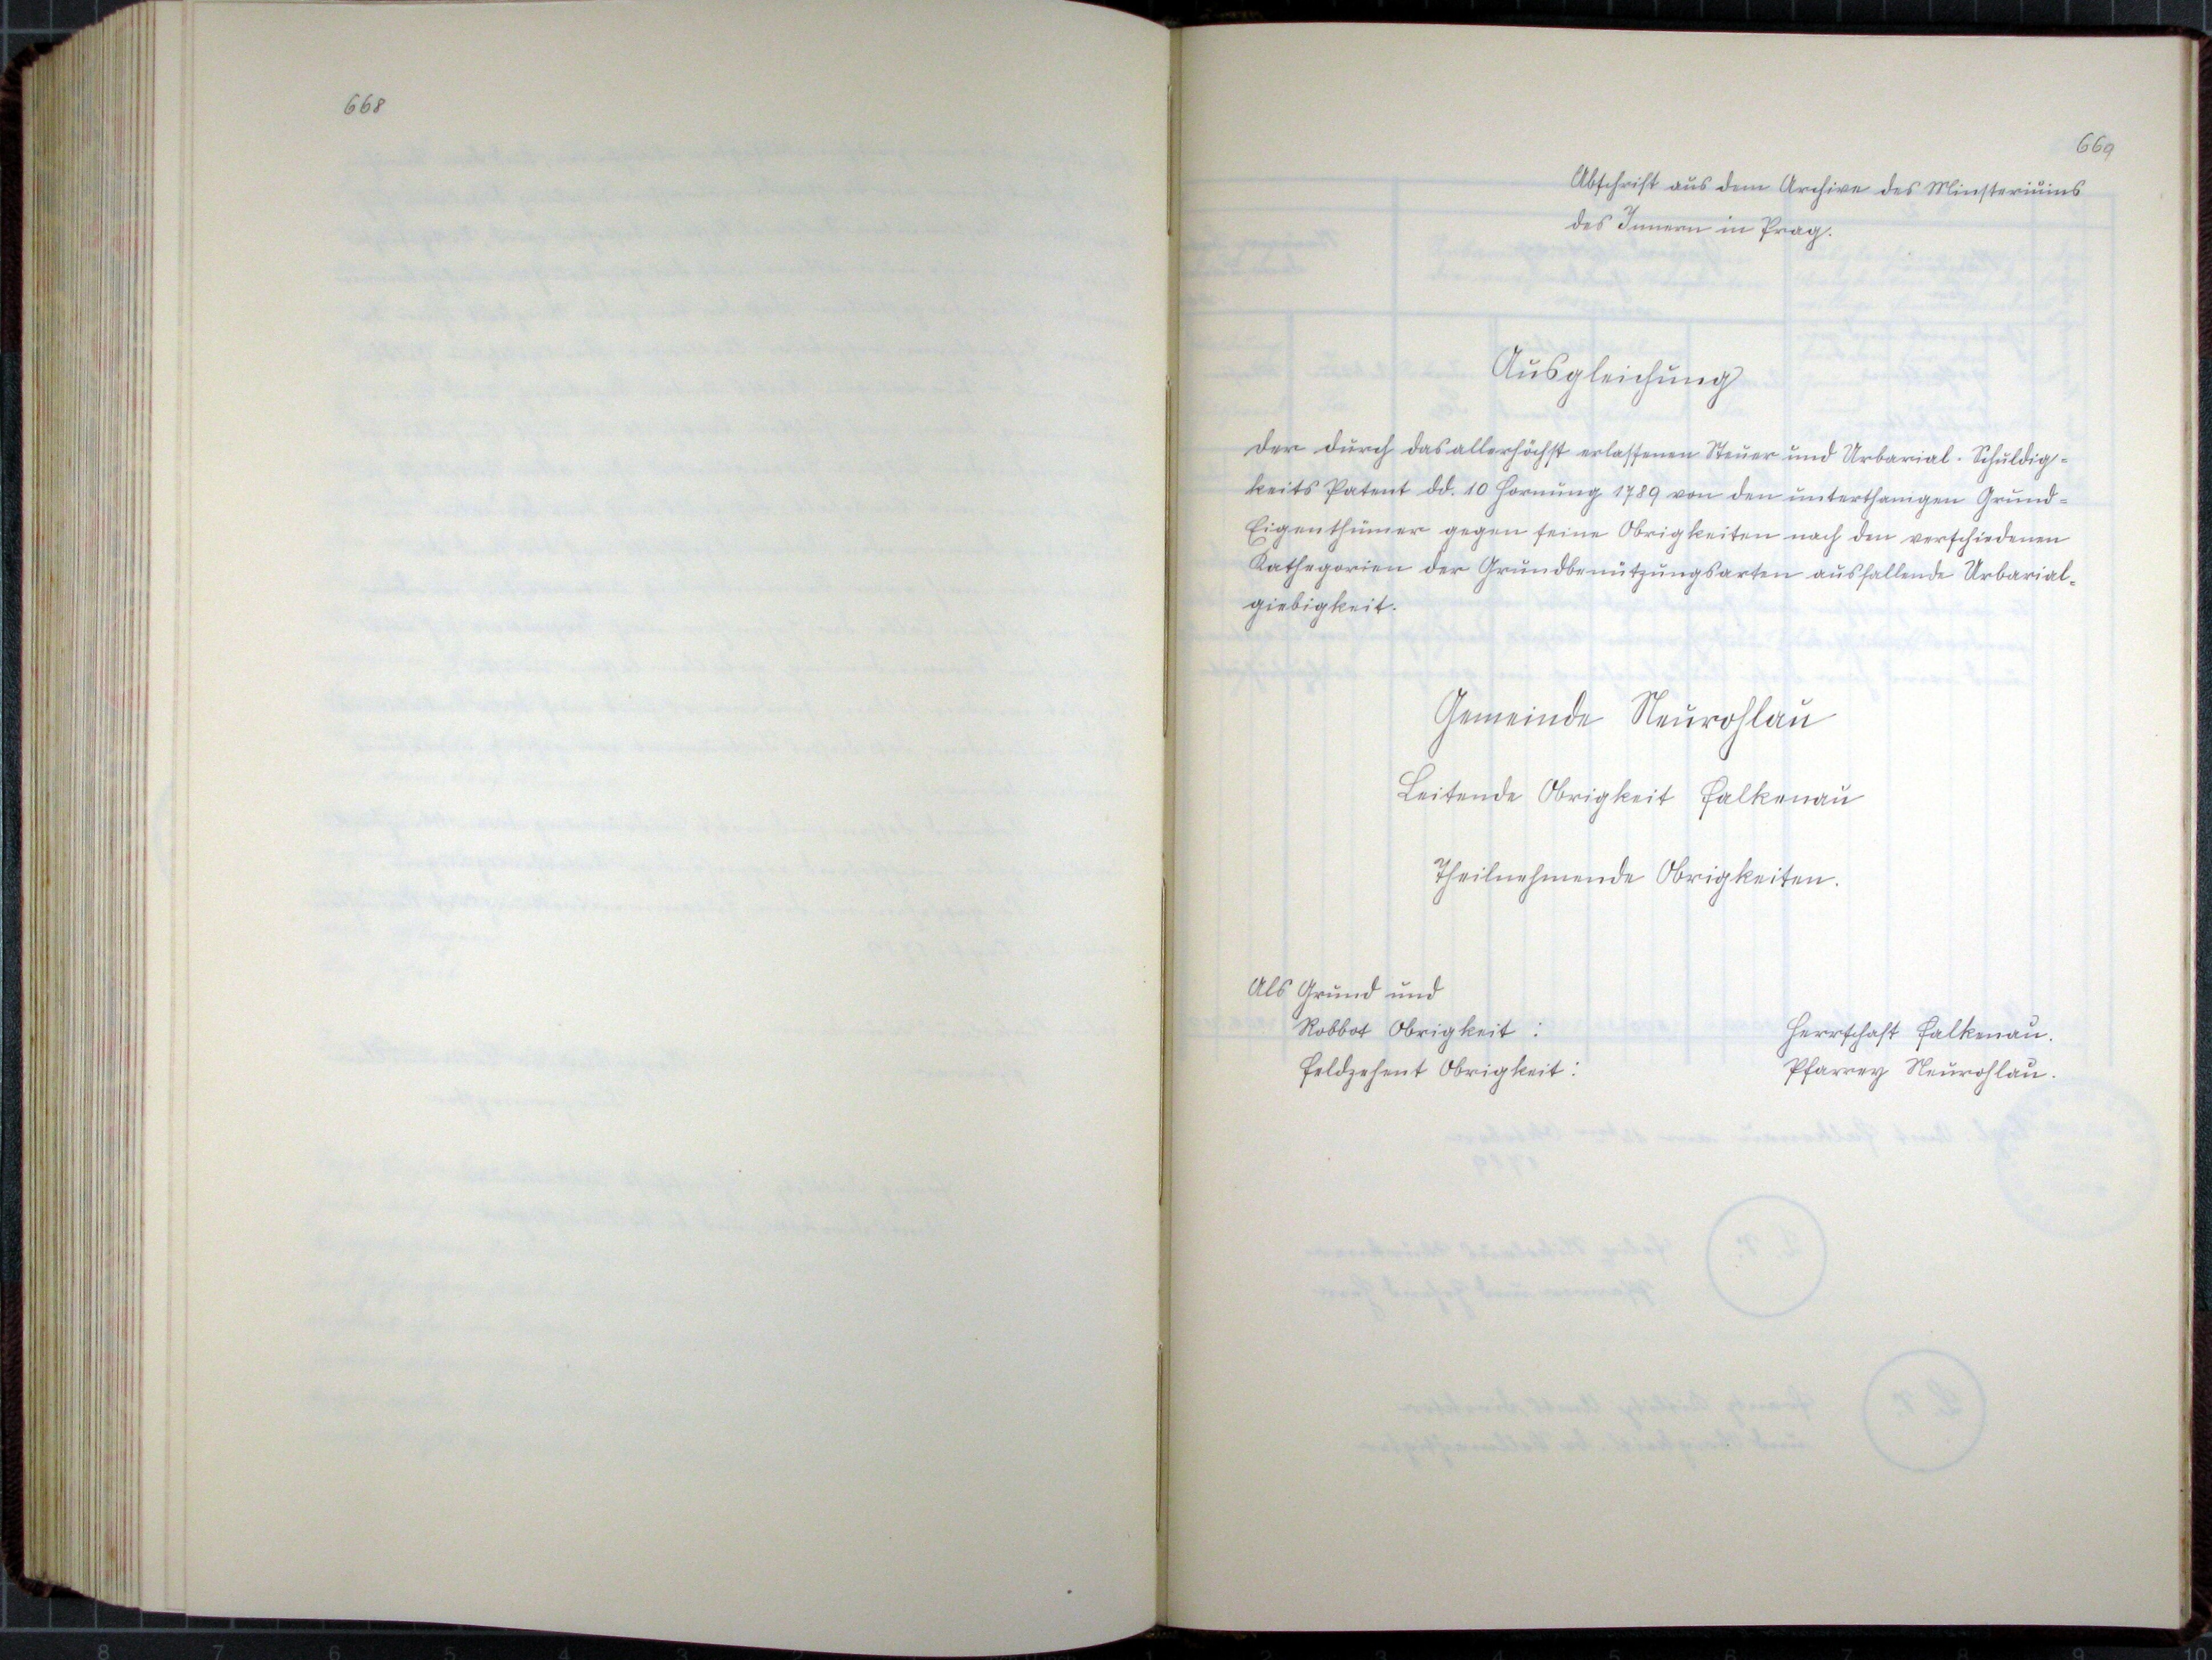 668
669
Abschrift aus dem Archive des Minsteriums
des Innern in Prag.
Ausgleichung
der durch das allerhöchst erlassenen Steuer und Urbarial-Schuldig-
keits Patent dd. 10 Hornung 1789 von den unterthanigen Grund-
Eigenthümer gegen seine Obrigkeiten nach den verschiedenen
Kathegorien der Grundbenützungsarten ausfallende Urbarial-
giebigkeit.
Gemeinde Neurohlau
Leitende Obrigkeit Falkenau
Theilnehmende Obrigkeiten.
Als Grund und
Robbot Obrigkeit : Herrschaft Falkenau.
Feldzehent Obrigkeit : Pfarrey Neurohlau.